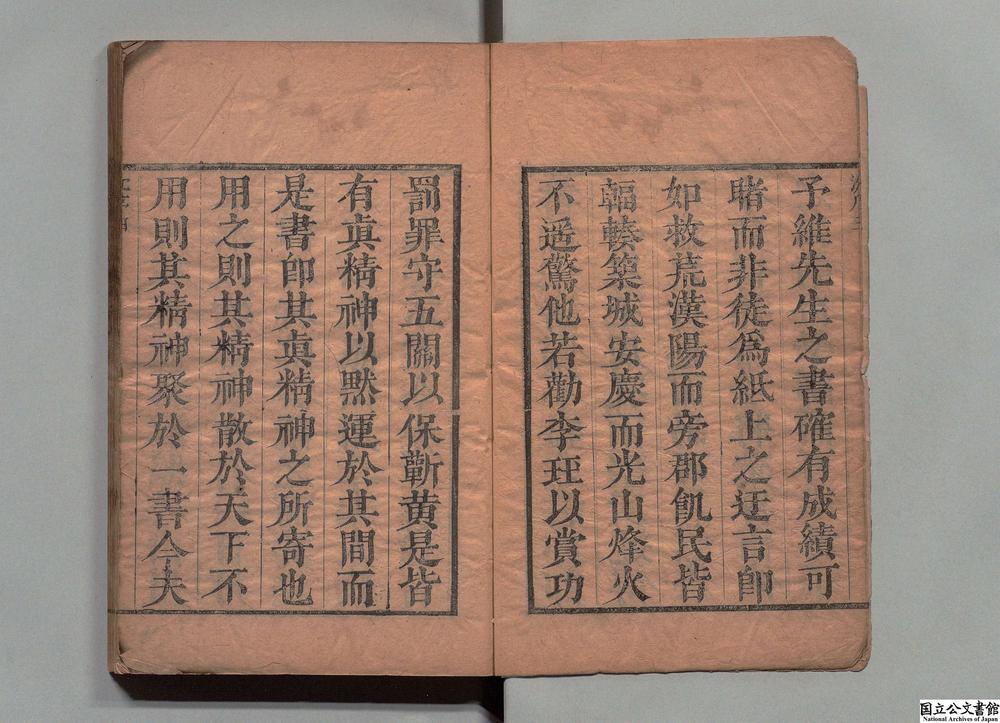 予維先生之書確有成績可
睹而非徒爲紙上之迂言卽
如救荒漢陽而旁郡飢民皆
輻輳築城安慶而光山烽火
不遥驚他若勸李珏以賞功
罰罪守五關以保蘄黄是皆
有眞精神以默運於其間而
是書卽其眞精神之所寄也
用之則其精神散於天下不
用則其精神聚於一書今夫
国立公文書館
National Archives of Japan